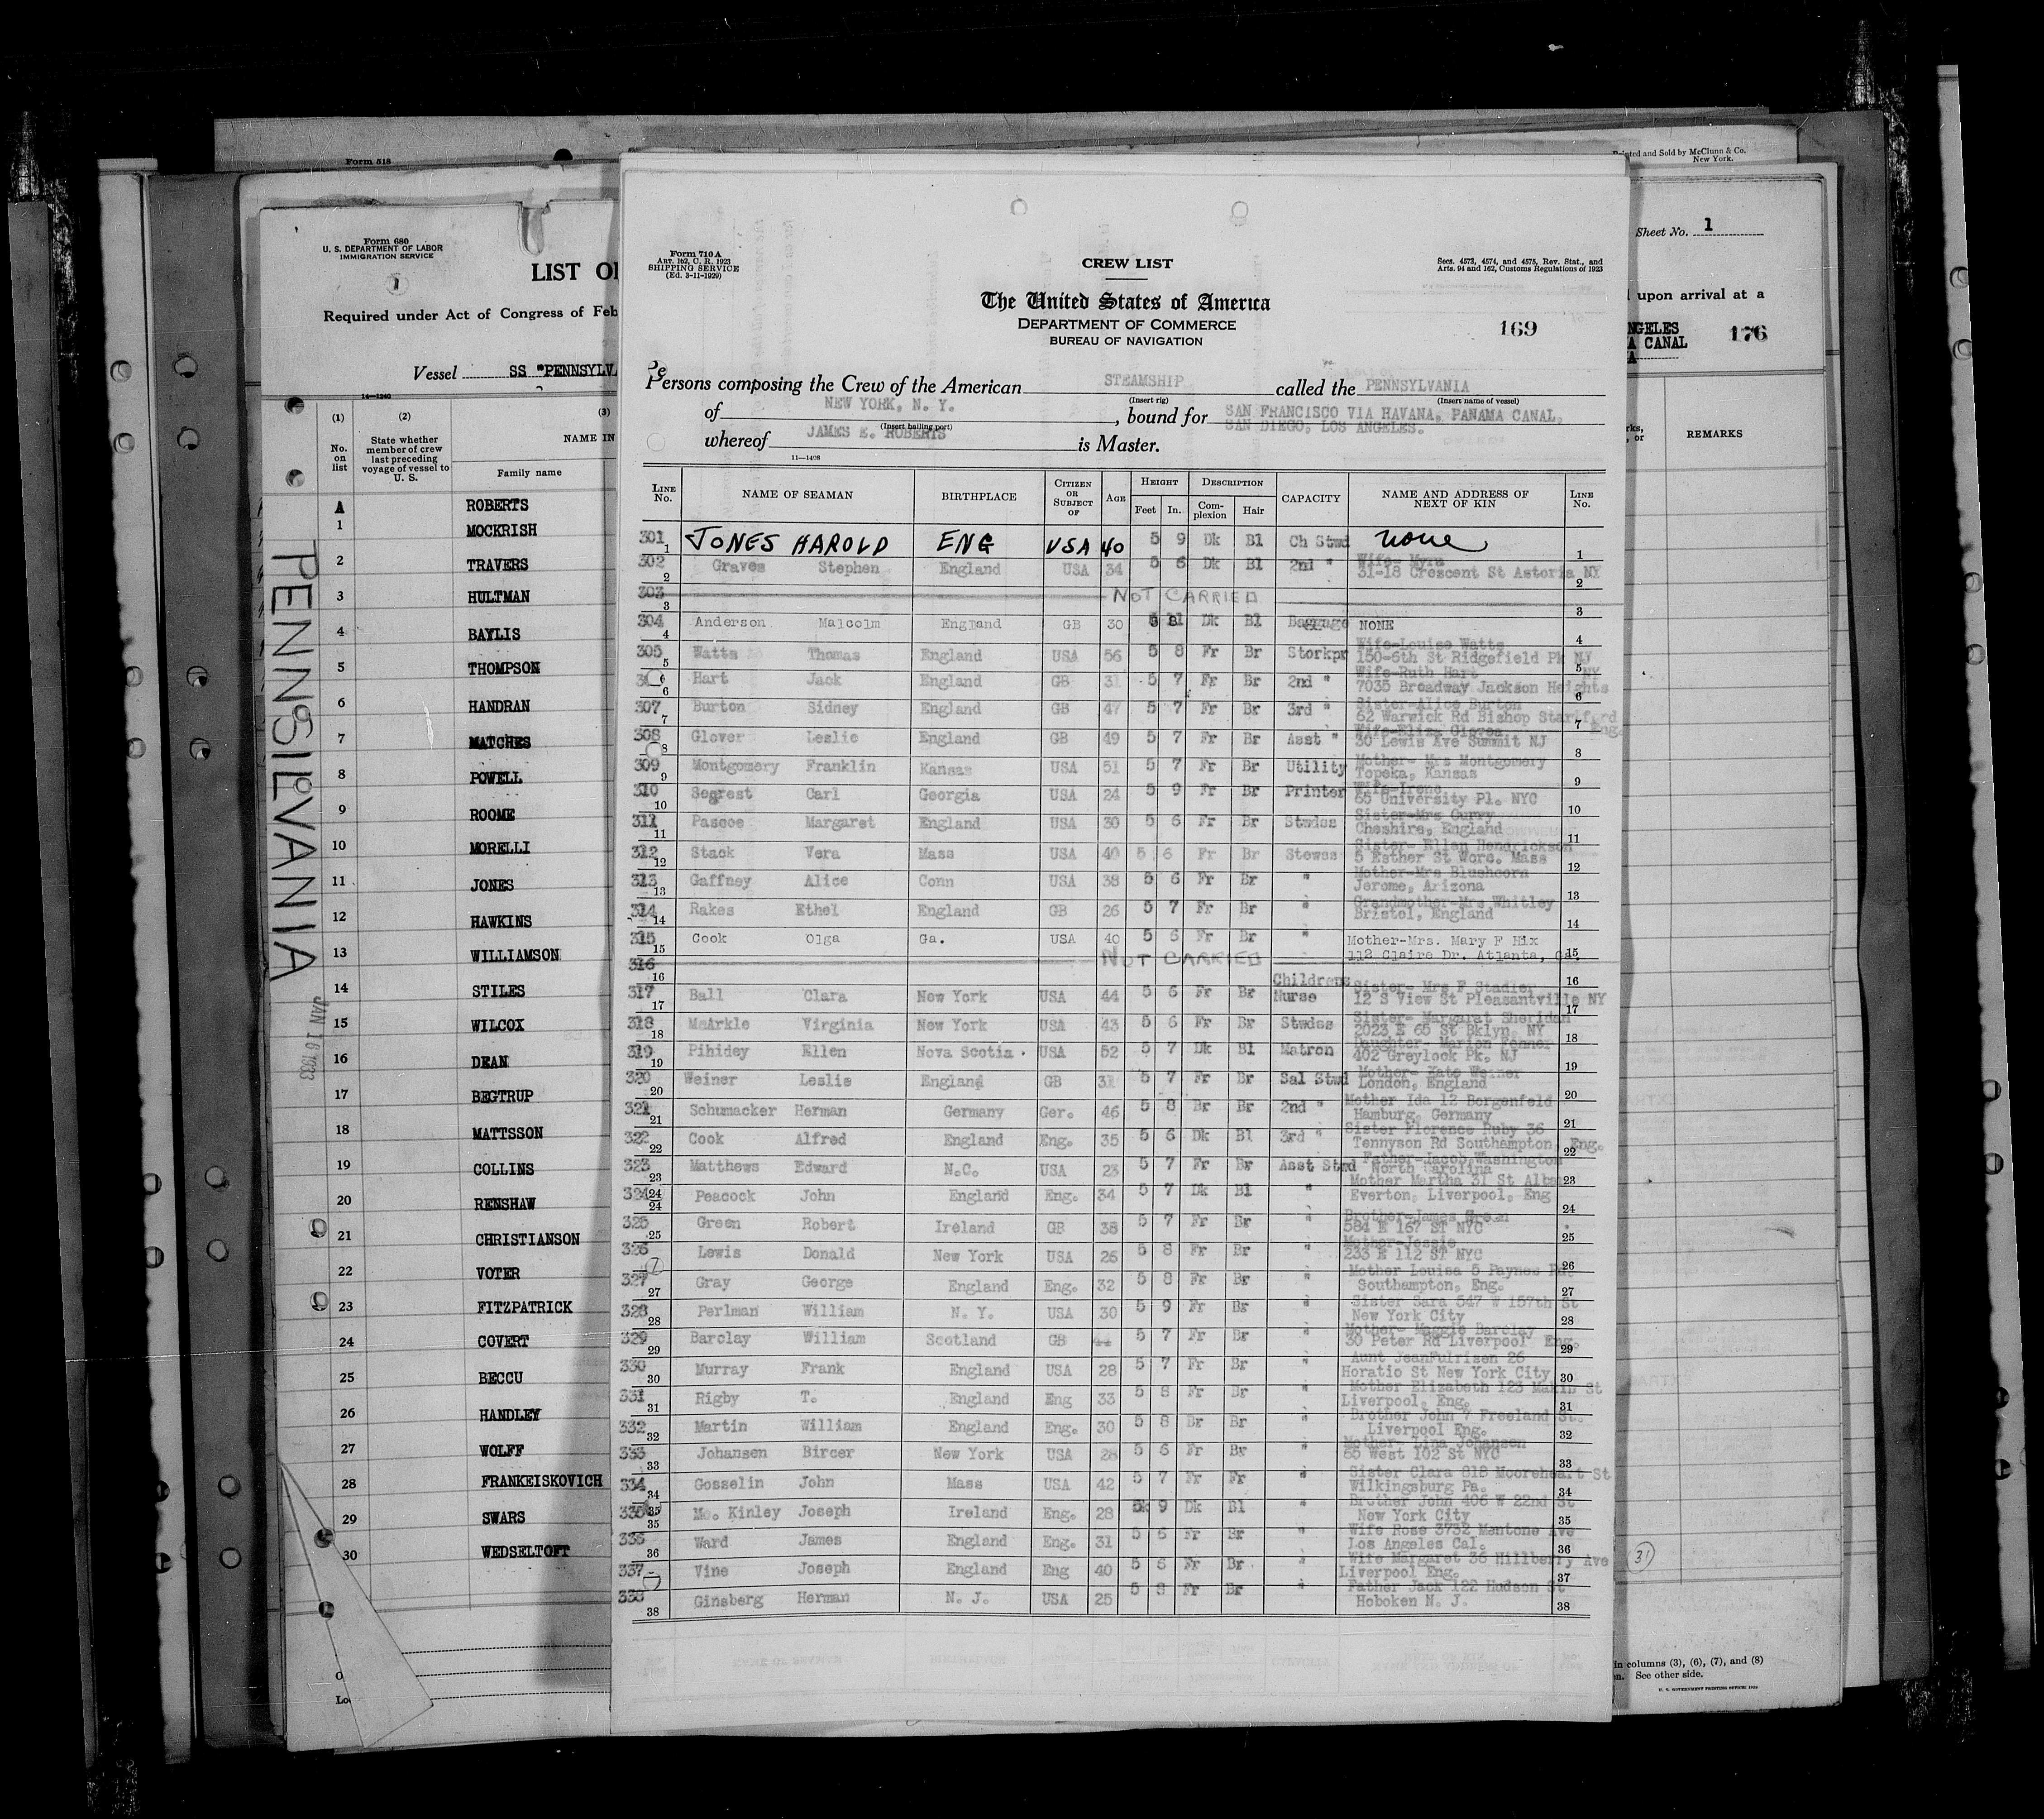 Form 518
Printed and Sold by McClunn & Co.
New York.
Form 680
U. S. DEPARTMENT OF LABOR
IMMIGRATION SERVICE
1
LIST O
Required under Act of Congress of Feb
Vessel SS "PENNSYLVA
14—1240
(1) (2) (3)
No. on list
State whether member of crew last preceding voyage of vessel to U. S.
NAME IN
Family name
A ROBERTS
1 MOCKRISH
2 TRAVERS
3 HULTMAN
4 BAYLIS
5 THOMPSON
6 HANDRAN
7 MATCHES
8 POWELL
9 ROOME
10 MORELLI
11 JONES
12 HAWKINS
13 WILLIAMSON
14 STILES
15 WILCOX
16 DEAN
17 BEGTRUP
18 MATTSSON
19 COLLINS
20 RENSHAW
21 CHRISTIANSON
22 VOTER
23 FITZPATRICK
24 COVERT
25 BECCU
26 HANDLEY
27 WOLFF
28 FRANKEISKOVICH
29 SWARS
30 WEDSELTOFT
PENNSILVANIA
JAN 16 1933
Form 710 A
ART. 162, C. R. 1923
SHIPPING SERVICE
(Ed. 3-11-1929)
CREW LIST
Secs. 4573, 4574, and 4575, Rev. Stat., and
Arts. 94 and 162, Customs Regulations of 1923
The United States of America
DEPARTMENT OF COMMERCE
BUREAU OF NAVIGATION
169
Persons composing the Crew of the American STEAMSHIP called the PENNSYLVANIA
(Insert rig) (Insert name of vessel)
of NEW YORK, N. Y., bound for SAN FRANCISCO VIA HAVANA, PANAMA CANAL,
(Insert hailing port) SAN DIEGO, LOS ANGELES.
whereof JAMES E. ROBERTS is Master.
11—1498
LINE No. NAME OF SEAMAN BIRTHPLACE CITIZEN OR SUBJECT OF AGE HEIGHT Feet In. DESCRIPTION Complexion Hair CAPACITY NAME AND ADDRESS OF NEXT OF KIN LINE No.
301 1 JONES HAROLD ENG USA 40 5 9 Dk Bl Ch Stwd none 1
302 2 Graves Stephen England USA 34 5 6 Dk Bl 2nd " Wife- Myra 31-18 Crescent St Astoria NY 2
303 3 NOT CARRIED 3
304 4 Anderson Malcolm England GB 30 5 Dk Bl Baggage NONE 4
305 5 Watts Thomas England USA 56 5 8 Fr Br Storkpr Wife-Louise Watts 150-6th St Ridgefield Pk NJ 5
6 Hart Jack England GB 31 5 7 Fr Br 2nd " Wife-Ruth Hart NY 7035 Broadway Jackson Heights 6
307 7 Burton Sidney England GB 47 5 7 Fr Br 3rd " Sister-Alice Burton 62 Warwick Rd Bishop Startford Eng. 7
308 8 Glover Leslie England GB 49 5 7 Fr Br Asst " Wife-Eliza Glover 30 Lewis Ave Summit NJ 8
309 9 Montgomery Franklin Kansas USA 51 5 7 Fr Br Utility Mother- Mrs Montgomery Topeka, Kansas 9
310 10 Segrest Carl Georgia USA 24 5 9 Fr Br Printer Wife-Irene 65 University Pl. NYC 10
311 11 Pascoe Margaret England USA 30 5 6 Fr Br Stwdss Sister-Mrs Curry Cheshire, England 11
312 12 Stack Vera Mass USA 40 5 6 Fr Br Stewss Sister- Ellen Hendrickson 5 Esther St Worc. Mass 12
313 13 Gaffney Alice Conn USA 38 5 6 Fr Br " Mother-Mrs Blushcorn Jerome, Arizona 13
314 14 Rakes Ethel England GB 26 5 7 Fr Br " Grandmother-Mrs Whitley Bristol, England 14
315 15 Cook Olga Ga. USA 40 5 6 Fr Br " Mother-Mrs. Mary F Hix 112 Claire Dr. Atlanta, Ga. 15
316 16 NOT CARRIED 16
317 17 Ball Clara New York USA 44 5 6 Fr Br Childrens Nurse Sister- Mrs F Stadler 12 S View St Pleasantville NY 17
318 18 McArkle Virginia New York USA 43 5 6 Fr Br Stwdss Sister- Margarat Sheridan 2023 E 65 St Bklyn. NY 18
319 19 Pihidey Ellen Nova Scotia USA 52 5 7 Dk Bl Matron Daughter- Marion Fenner 402 Greylock Pk, NJ 19
320 20 Weiner Leslie England GB 31 5 7 Fr Br Sal Stwd Mother- Kate Weiner London, England 20
321 21 Schumacker Herman Germany Ger. 46 5 8 Br Br 2nd " Mother Ida 12 Borgenfeld Hamburg, Germany 21
322 22 Cook Alfred England Eng. 35 5 6 Dk Bl 3rd " Sister Florence Ruby 36 Tennyson Rd Southampton, Eng. 22
323 23 Matthews Edward N.C. USA 23 5 7 Fr Br Asst Stwd Father-Jacob Washington North Carolina 23
324 24 Peacock John England Eng. 34 5 7 Dk Bl " Mother Martha 31 St Alban Everton, Liverpool, Eng 24
325 25 Green Robert Ireland GB 38 5 7 Fr Br " Brother-James Green 584 E 167 ST NYC 25
326 Lewis Donald New York USA 26 5 8 Fr Br " Mother-Jessie 233 E 112 ST NYC 26
327 27 Gray George England Eng. 32 5 8 Fr Br " Mother Louisa 5 Paynes Rd. Southampton, Eng. 27
328 28 Perlman William N. Y. USA 30 5 9 Fr Br " Sister Sara 547 W 157th St New York City 28
329 29 Barclay William Scotland GB 44 5 7 Fr Br " Mother- Maggie Barclay 30 Peter Rd Liverpool Eng. 29
330 30 Murray Frank England USA 28 5 7 Fr Br " Aunt JeanFulrisen 26 Horatio St New York City 30
331 31 Rigby T. England Eng 33 5 8 Fr Br " Mother Elizabeth 123 Makin St Liverpool, Eng. 31
332 32 Martin William England Eng. 30 5 8 Br Br " Brother John 7 Freeland St. Liverpool Eng. 32
333 33 Johansen Bircer New York USA 28 5 6 Fr Br " Mother- Lina Johansen 65 West 102 St NYC 33
334 34 Gosselin John Mass USA 42 5 7 Fr Fr " Sister Clara 818 Mooreheart St Wilkingsburg Pa. 34
335 35 Mc. Kinley Joseph Ireland Eng. 28 5 9 Dk Bl " Brother John 406 W 22nd St New York City 35
336 36 Ward James England Eng. 31 5 6 Fr Br " Wife Rose 3732 Mentone Ave Los Angeles Cal. 36
337 Vine Joseph England Eng 40 5 6 Fr Br " Wife Margaret 36 Hillberry Ave Liverpool Eng. 37
338 38 Ginsberg Herman N. J. USA 25 5 8 Fr Br " Father Jack 122 Hudson St Hoboken N. J. 38
Sheet No. 1
upon arrival at a
NGELES
A CANAL
176
REMARKS
31
in columns (3), (6), (7), and (8)
See other side.
U. S. GOVERNMENT PRINTING OFFICE